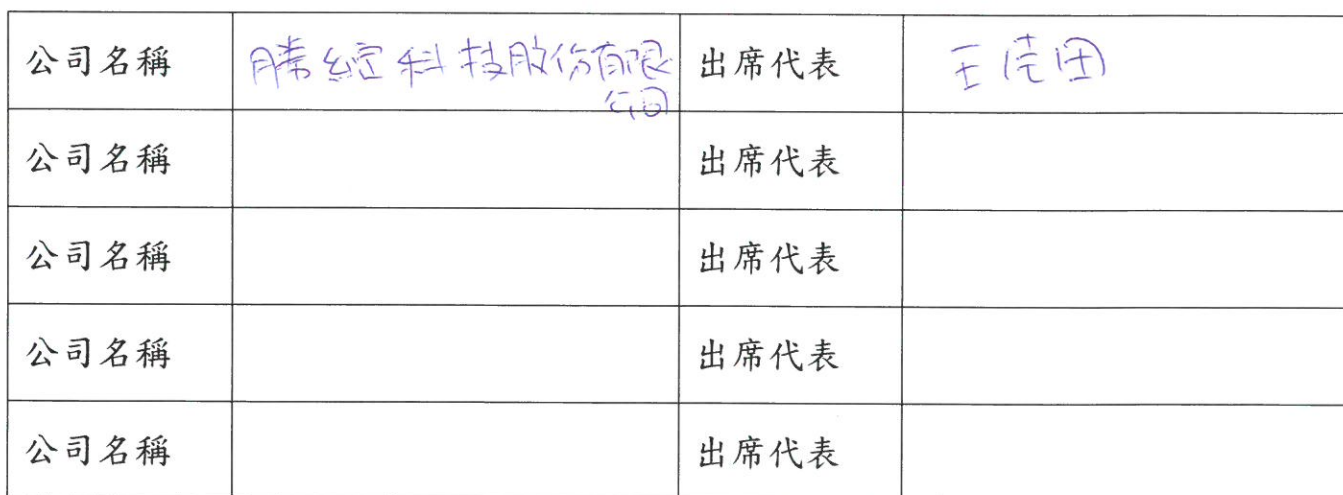 公司名稱 科技股份有限公司 出席代表 王
公司名稱 出席代表
公司名稱 出席代表
公司名稱 出席代表
公司名稱 出席代表